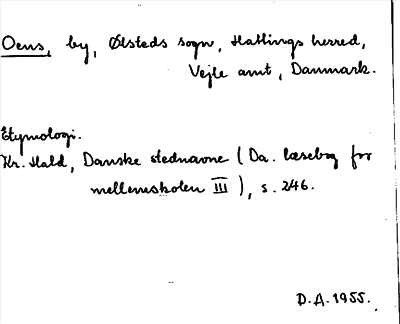 Oens, by, Ølsteds sogn, Hatlings herred,
Vejle amt, Danmark.
Etymologi.
Kr. Hald, Danske stednavne (Da. læsebog for
mellemskolen III), s. 246.
D.A. 1955.